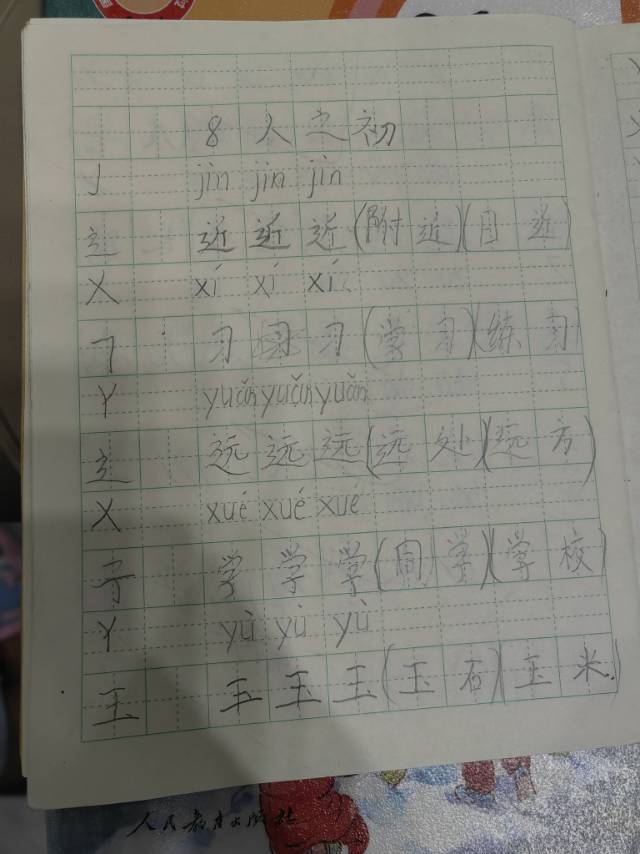 8 人之初
J jìn jìn jìn
辶 近 近 近(附近)(目近)
X xí xí xí
㇆ 习 习 习(学习)(练习)
Y yuǎn yuǎn yuǎn
辶 远 远 远(远处)(远方)
X xué xué xué
子 学 学 学(同学)(学校)
Y yù yù yù
王 玉 玉 玉(玉石)(玉米)
人民教育出版社